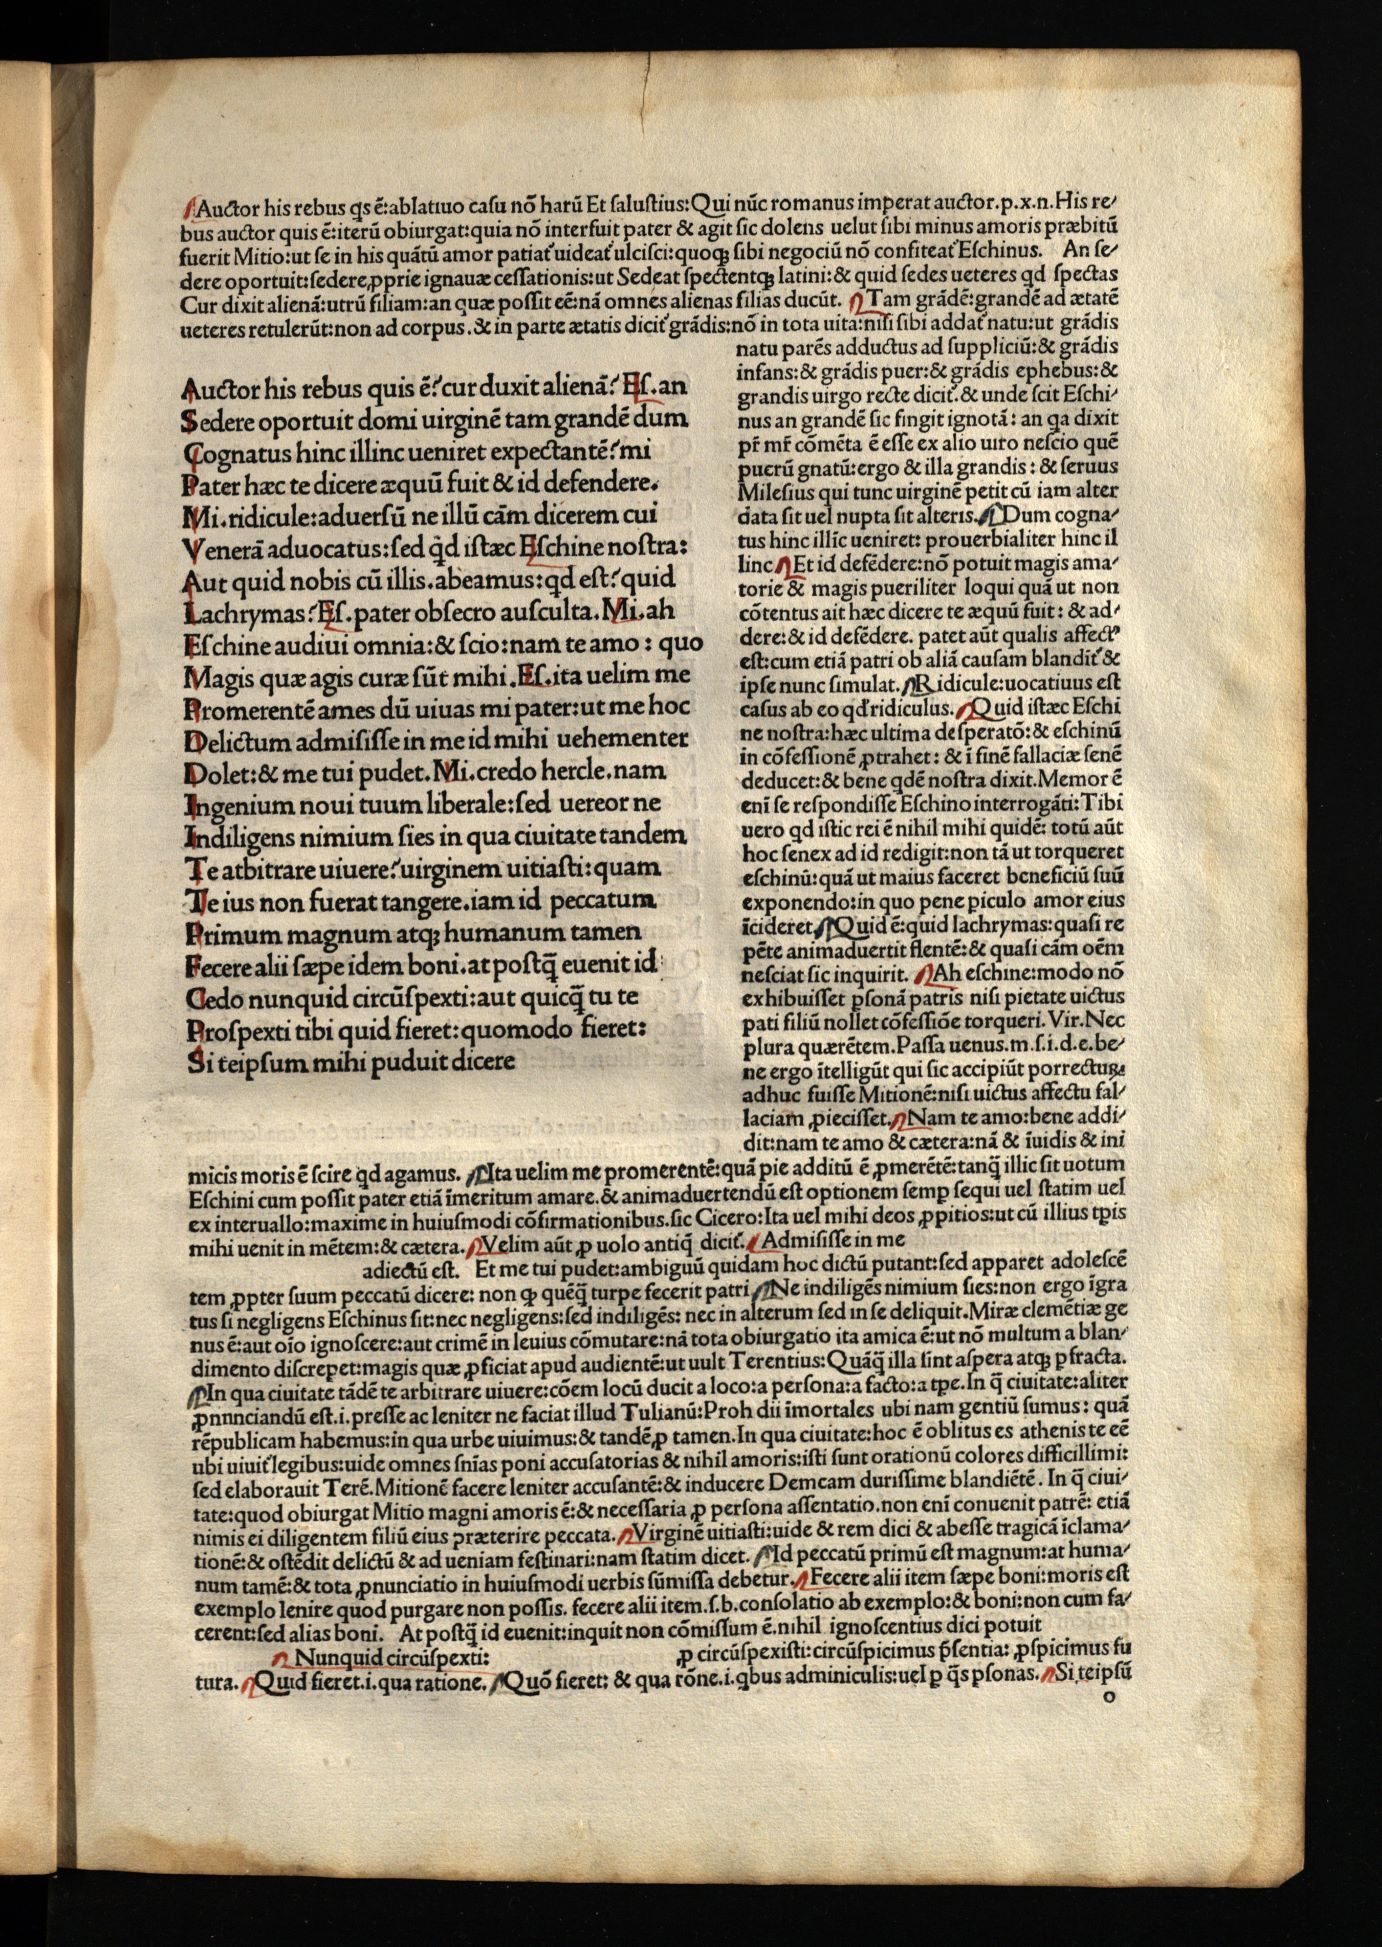 Auctor his rebus qs ē:ablatiuo casu nō harū Et salustius:Qui nūc romanus imperat auctor.p.x.n.His re/
bus auctor quis ē:iterū obiurgat:quia nō interfuit pater & agit sic dolens uelut sibi minus amoris præbitū
fuerit Mitio:ut se in his quātū amor patiat᷑ uideat᷑ ulcisci:quoqꝫ sibi negociū nō confiteat᷑ Eschinus. An se/
dere oportuit:sedere ꝓprie ignauæ cessationis:ut Sedeat spectentqꝫ latini:& quid sedes ueteres qd spectas
Cur dixit alienā:utrū filiam:an quæ possit eē:nā omnes alienas filias ducūt. Tam grādē:grandē ad ætatē
ueteres retulerūt:non ad corpus.& in parte ætatis dicit᷑ grādis:nō in tota uita:nisi sibi addat᷑ natu:ut grādis
Auctor his rebus quis ē? cur duxit alienā? Es.an
Sedere oportuit domi uirginē tam grandē dum
Cognatus hinc illinc ueniret expectantē? mi
Pater hæc te dicere æquū fuit & id defendere.
Mi.ridicule:aduersū ne illū cām dicerem cui
Venerā aduocatus:sed qd istæc Eschine nostra:
Aut quid nobis cū illis.abeamus:qd est? quid
Lachrymas? Es.pater obsecro ausculta.Mi.ah
Eschine audiui omnia:& scio:nam te amo : quo
Magis quæ agis curæ sūt mihi.Es.ita uelim me
Promerentē ames dū uiuas mi pater:ut me hoc
Delictum admisisse in me id mihi uehementer
Dolet:& me tui pudet.Mi.credo hercle.nam
Ingenium noui tuum liberale:sed uereor ne
Indiligens nimium sies in qua ciuitate tandem
Te atbitrare uiuere? uirginem uitiasti:quam
Te ius non fuerat tangere.iam id peccatum
Primum magnum atqꝫ humanum tamen
Fecere alii sæpe idem boni.at postq̄ euenit id
Cedo nunquid circūspexti:aut quicq̄ tu te
Prospexti tibi quid fieret:quomodo fieret:
Si teipsum mihi puduit dicere
natu parēs adductus ad suppliciū:& grādis
infans:& grādis puer:& grādis ephebus:&
grandis uirgo recte dicit᷑.& unde scit Eschi/
nus an grandē sic fingit ignotā: an qa dixit
pr̄ mr̄ cōmēta ē esse ex alio uiro nescio quē
puerū gnatū:ergo & illa grandis : & seruus
Milesius qui tunc uirginē petit cū iam alter
data sit uel nupta sit alteris. Dum cogna/
tus hinc illīc ueniret: prouerbialiter hinc il
linc Et id defēdere:nō potuit magis ama/
torie & magis pueriliter loqui quā ut non
cōtentus ait hæc dicere te æquū fuit : & ad/
dere:& id defēdere. patet aūt qualis affectꝰ
est:cum etiā patri ob aliā causam blandit᷑ &
ipse nunc simulat. Ridicule:uocatiuus est
casus ab eo qd ridiculus. Quid istæc Eschi
ne nostra:hæc ultima desperatō:& eschinū
in cōfessionē ꝓtrahet: & ī finē fallaciæ senē
deducet:& bene qdē nostra dixit.Memor ē
enī se respondisse Eschino interrogāti:Tibi
uero qd istic rei ē nihil mihi quidē: totū aūt
hoc senex ad id redigit:non tā ut torqueret
eschinū:quā ut maius faceret beneficiū suū
exponendo:in quo pene piculo amor eius
īcideret Quid ē:quid lachrymas:quasi re
pēte animaduertit flentē:& quasi cām oēm
nesciat sic inquirit. Ah eschine:modo nō
exhibuisset psonā patris nisi pietate uictus
pati filiū nollet cōfessiōe torqueri.Vir.Nec
plura quærētem.Passa uenus.m.s.i.d.e.be/
ne ergo ītelligūt qui sic accipiūt porrectuꝝ
adhuc fuisse Mitionē:nisi uictus affectu fal/
laciam ꝓiecisset. Nam te amo:bene addi/
dit:nam te amo & cætera:nā & īuidis & ini
micis moris ē scire qd agamus. Ita uelim me promerentē:quā pie additū ē ꝓmerētē:tanq̄ illic sit uotum
Eschini cum possit pater etiā īmeritum amare.& animaduertendū est optionem semp sequi uel statim uel
ex interuallo:maxime in huiusmodi cōfirmationibus.sic Cicero:Ita uel mihi deos ꝓpitios:ut cū illius tpis
mihi uenit in mētem:& cætera. Velim aūt ꝓ uolo antiq̄ dicit᷑. Admisisse in me
adiectū est. Et me tui pudet:ambiguū quidam hoc dictū putant:sed apparet adolescē
tem ꝓpter suum peccatū dicere: non ꝙ quēq̄ turpe fecerit patri Ne indiligēs nimium sies:non ergo īgra
tus si negligens Eschinus sit:nec negligens:sed indiligēs: nec in alterum sed in se deliquit.Miræ clemētiæ ge
nus ē:aut oīo ignoscere:aut crimē in leuius cōmutare:nā tota obiurgatio ita amica ē:ut nō multum a blan/
dimento discrepet:magis quæ ꝓficiat apud audientē:ut uult Terentius:Quāq̄ illa sint aspera atqꝫ pfracta.
In qua ciuitate tādē te arbitrare uiuere:cōem locū ducit a loco:a persona:a facto:a tpe.In q̄ ciuitate:aliter
ꝓnnnciandū est.i.presse ac leniter ne faciat illud Tulianū:Proh dii īmortales ubi nam gentiū sumus : quā
rēpublicam habemus:in qua urbe uiuimus:& tandē ꝓ tamen.In qua ciuitate:hoc ē oblitus es athenis te eē
ubi uiuit᷑ legibus:uide omnes snīas poni accusatorias & nihil amoris:isti sunt orationū colores difficillimi:
sed elaborauit Terē.Mitionē facere leniter accusantē:& inducere Demeam durissime blandiētē. In q̄ ciui/
tate:quod obiurgat Mitio magni amoris ē:& necessaria ꝓ persona assentatio.non enī conuenit patrē: etiā
nimis ei diligentem filiū eius præterire peccata. Virginē uitiasti:uide & rem dici & abesse tragicā īclama/
tionē:& ostēdit delictū & ad ueniam festinari:nam statim dicet. Id peccatū primū est magnum:at huma/
num tamē:& tota ꝓnunciatio in huiusmodi uerbis sūmissa debetur. Fecere alii item sæpe boni:moris est
exemplo lenire quod purgare non possis. fecere alii item.s.b.consolatio ab exemplo:& boni:non cum fa/
cerent:sed alias boni. At postq̄ id euenit:inquit non cōmissum ē.nihil ignoscentius dici potuit
Nunquid circūspexti: ꝓ circūspexisti:circūspicimus p̄sentia: ꝓspicimus fu
tura. Quid fieret.i.qua ratione. Quō fieret: & qua rōne.i.qbus adminiculis:uel p q̄s psonas. Si teipsū
o